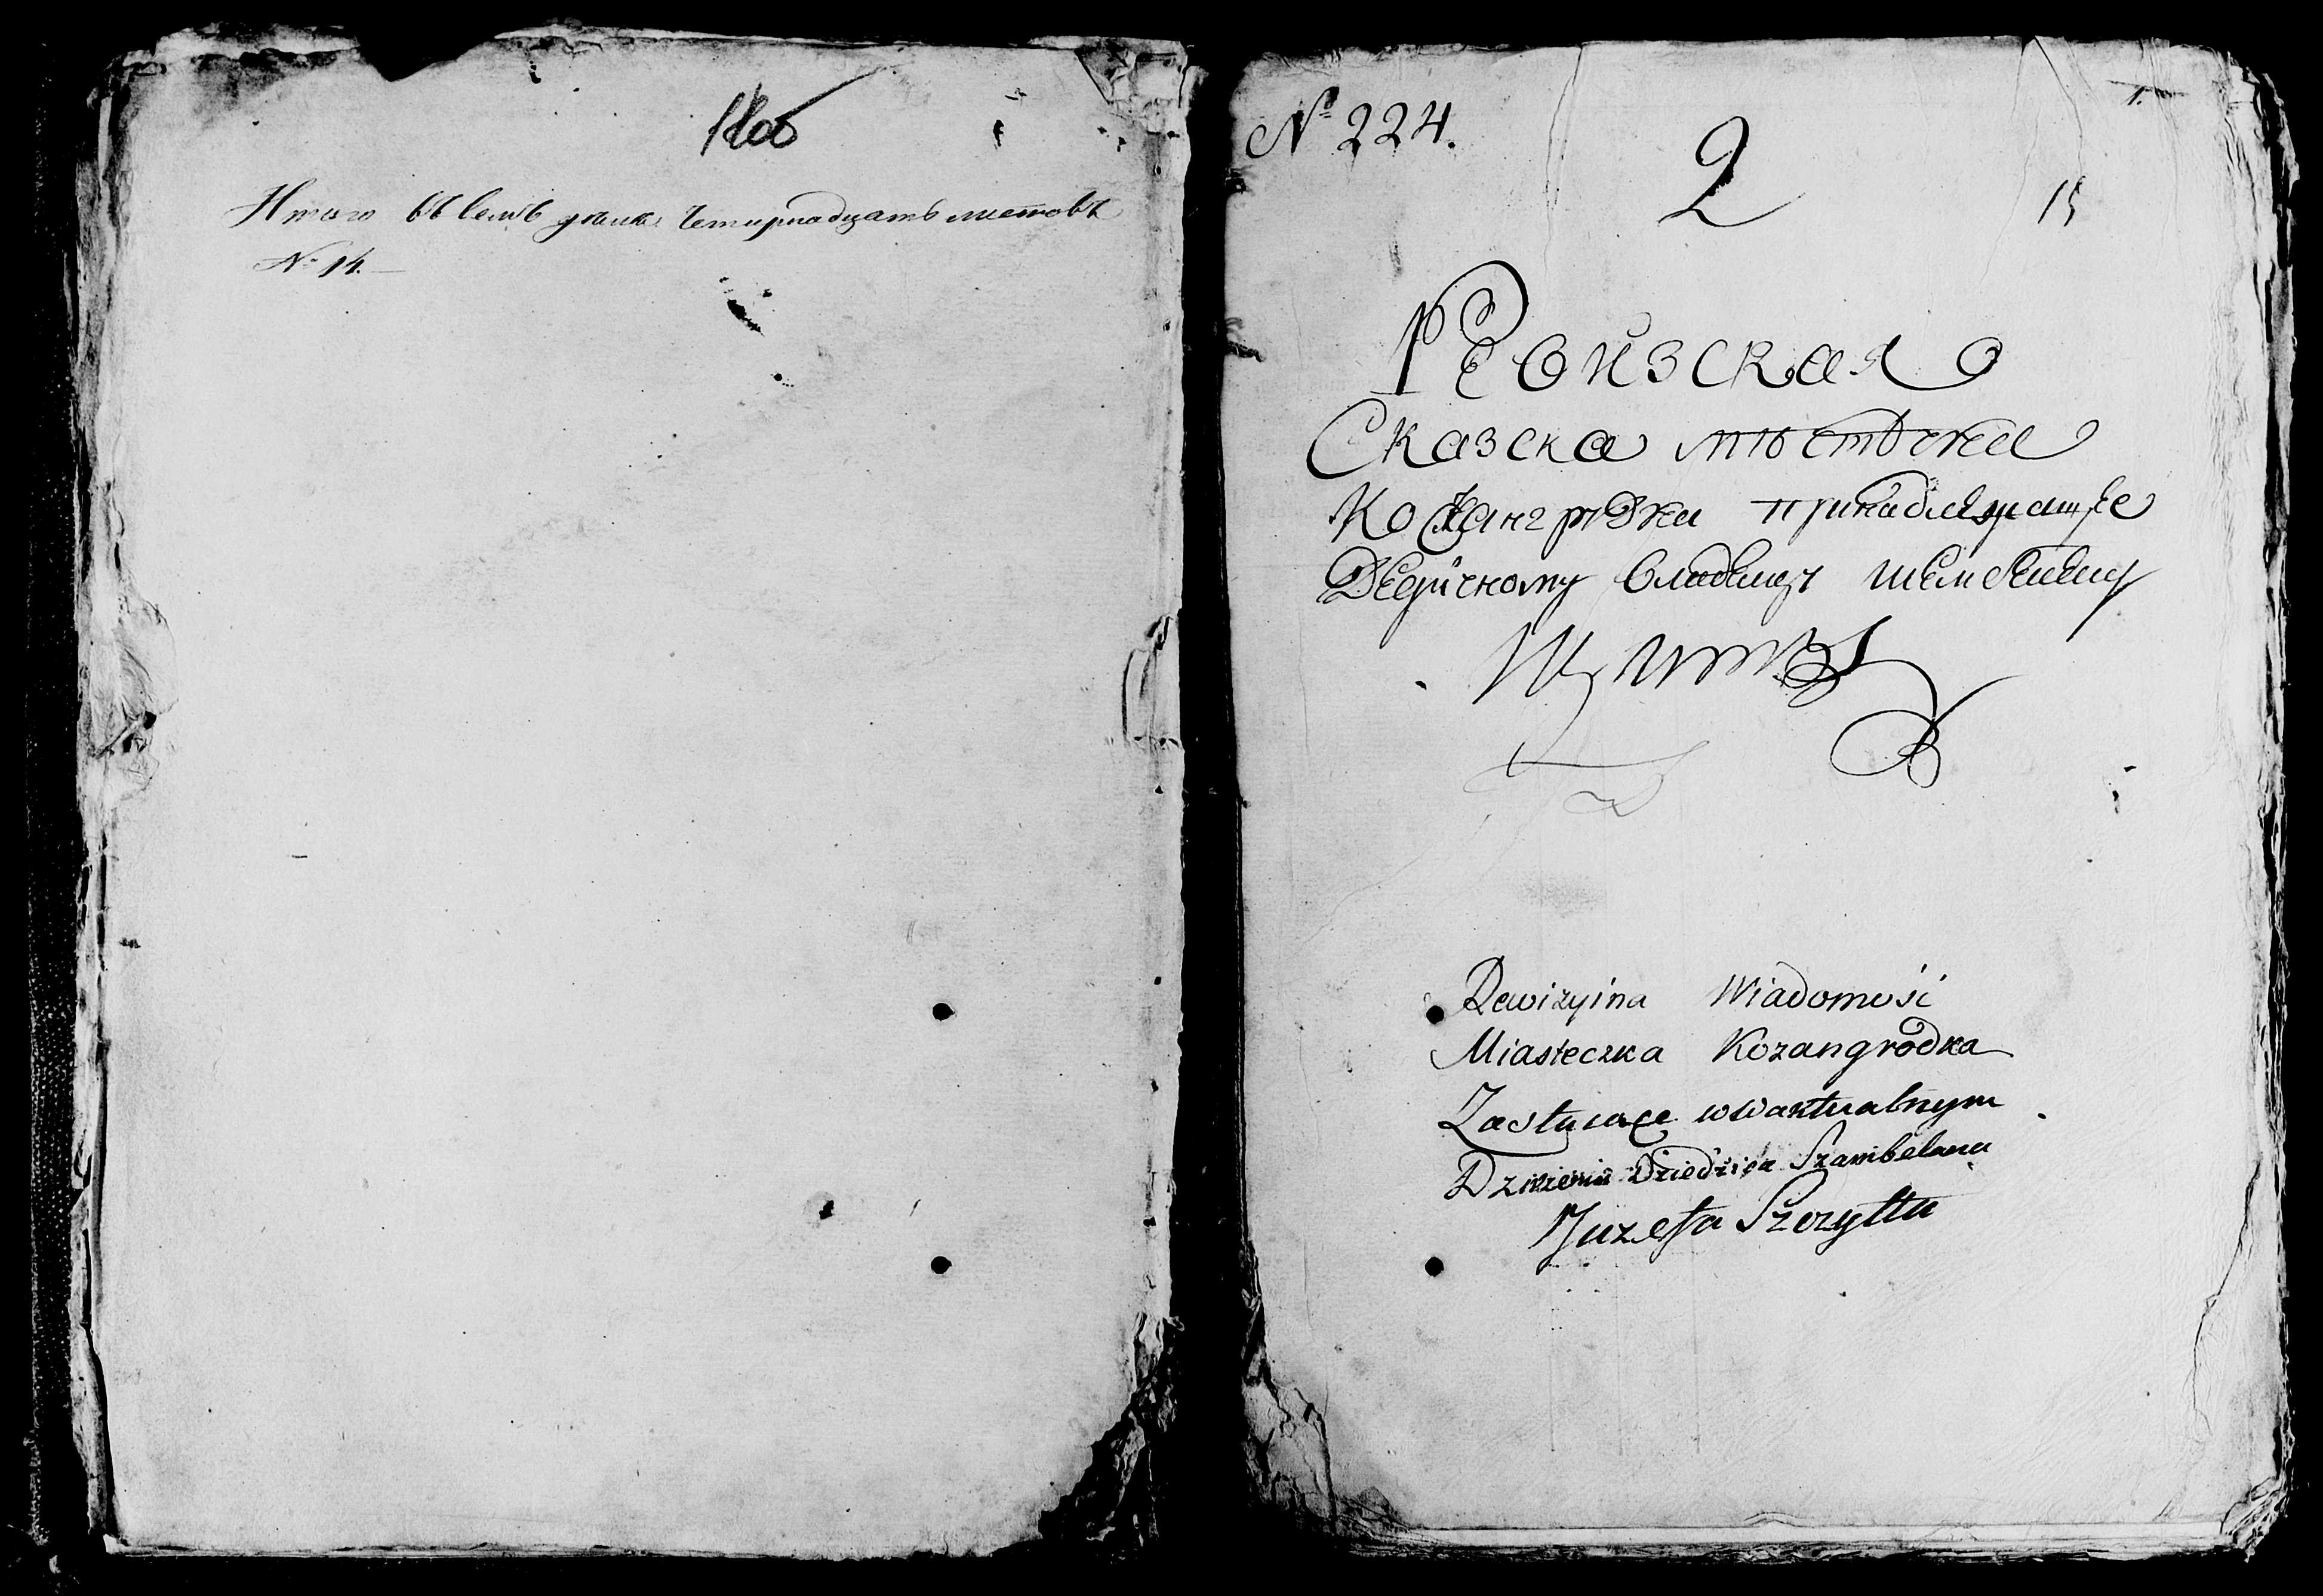 Итого въ семъ деле четирнадцать листовъ
№ 14.
№ 224.
1.
2
15
Ревизская
Сказска мѣстечка
Кожангрудка принадлежащее
Дедичному Владелцу
Rewizyina Wiadomość
Miasteczka Kozangrodka
Zostaiące w waktualnym
Dzierżeniu Dziedzica Szambelana
Juzefa Szczytta